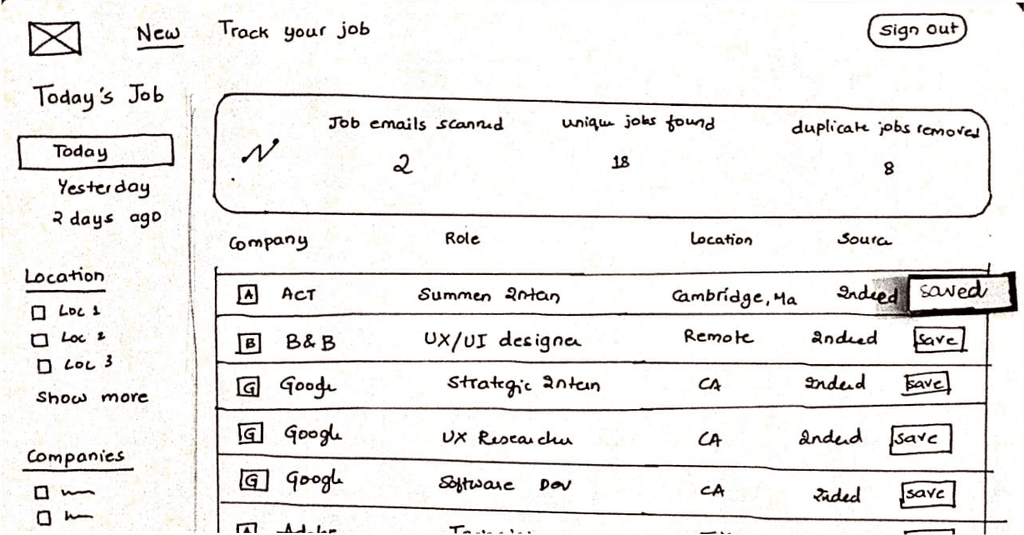 New Track your job Sign out
Today's Job
Today
Yesterday
2 days ago
Location
Loc 1
Loc 2
Loc 3
Show more
Companies
Job emails scanned unique jobs found duplicate jobs removed
2 18 8
Company Role Location Source
A ACT Summer Intern Cambridge, Ma Indeed saved
B B&B UX/UI designer Remote Indeed save
G Google Strategic Intern CA Indeed save
G Google UX Researcher CA Indeed save
G Google Software Dev CA Indeed save